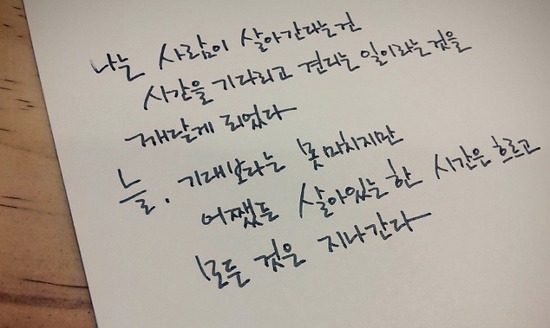 나는 사람이 살아간다는건
시간을 기다리고 견디는 일이라는것을
깨달게 되었다
늘, 기대보다는 못 미치지만
어쨌든 살아있는한 시간은 흐르고
모든 것은 지나간다